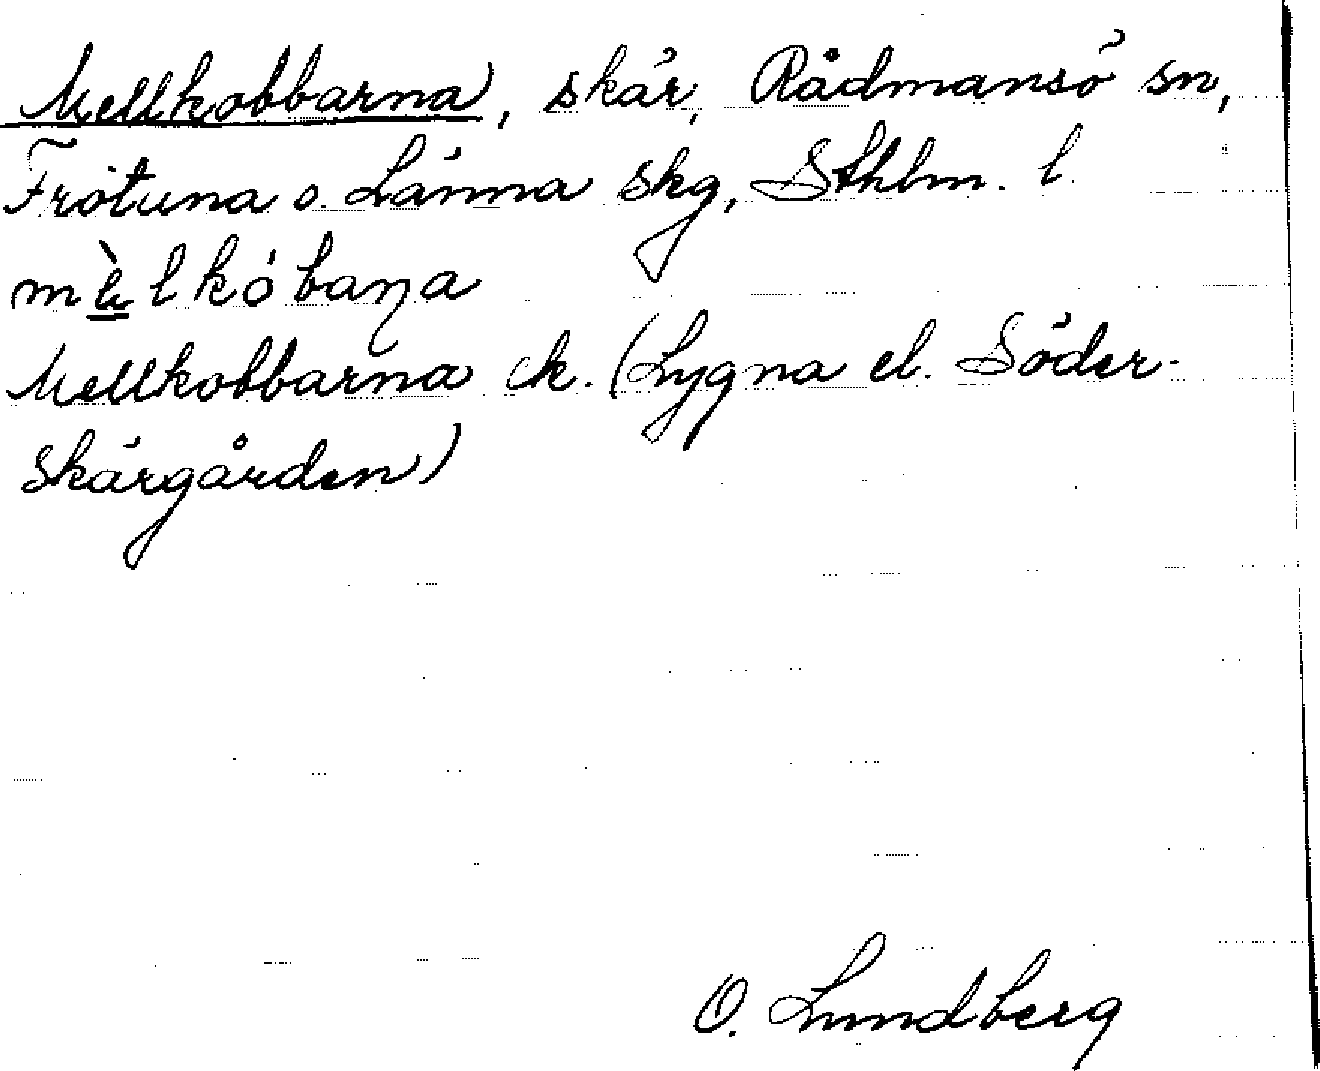 Mellkobbarna, skär, Rådmansö sn,
Frötuna o. Länna skg, Sthlm. l.
mèlkóbaɳa
Mellkobbarna ek. (Lygna el. Söder-
skärgården)
O. Lundberg